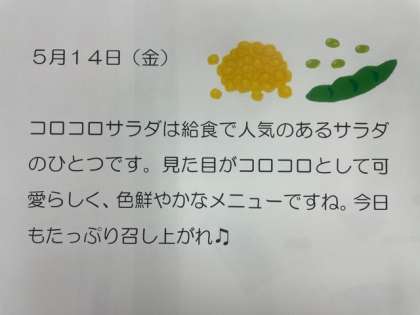 ５月１４日（金）
コロコロサラダは給食で人気のあるサラダ
のひとつです。見た目がコロコロとして可
愛らしく、色鮮やかなメニューですね。今日
もたっぷり召し上がれ♫